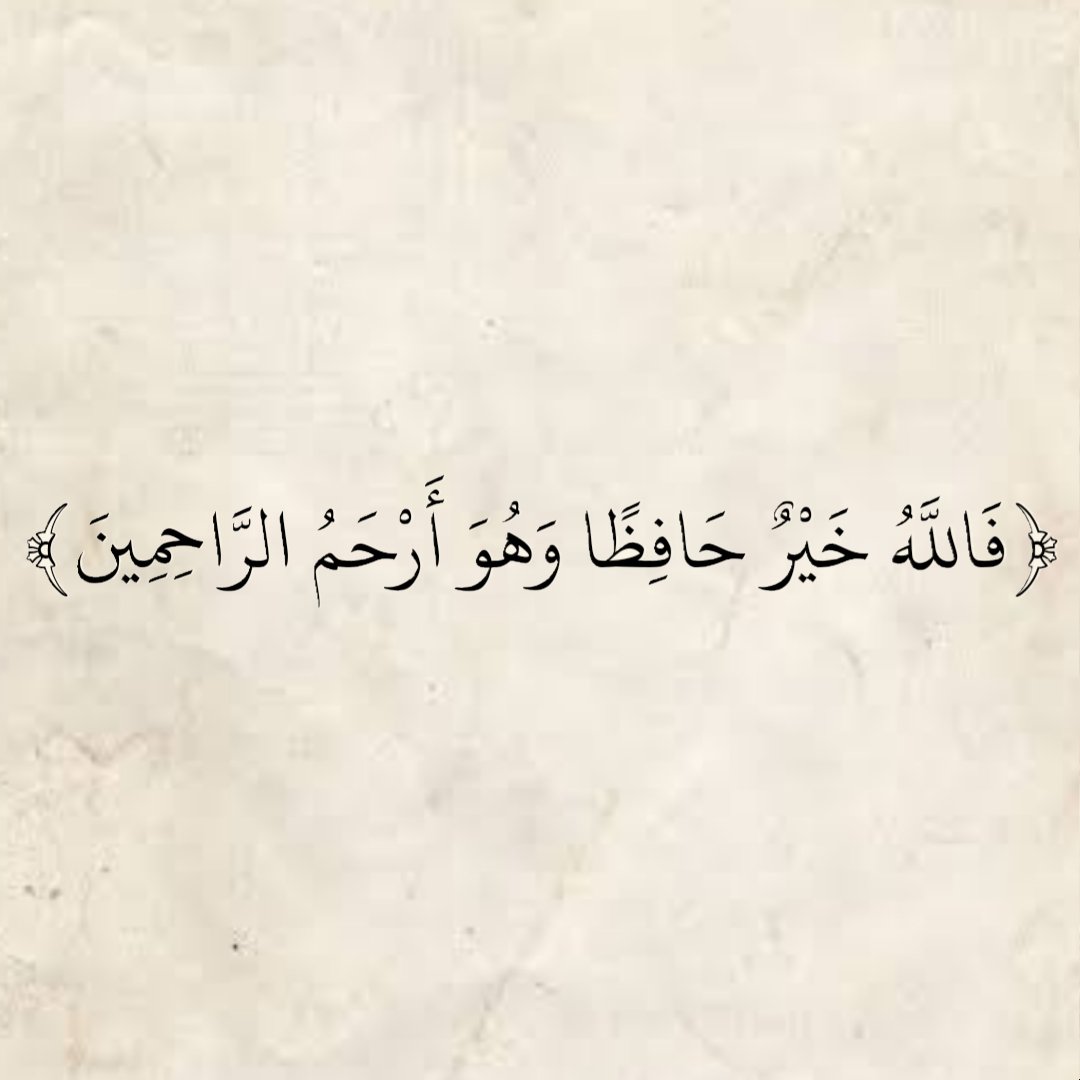 ﴿ فَاللَّهُ خَيْرٌ حَافِظًا وَهُوَ أَرْحَمُ الرَّاحِمِينَ ﴾